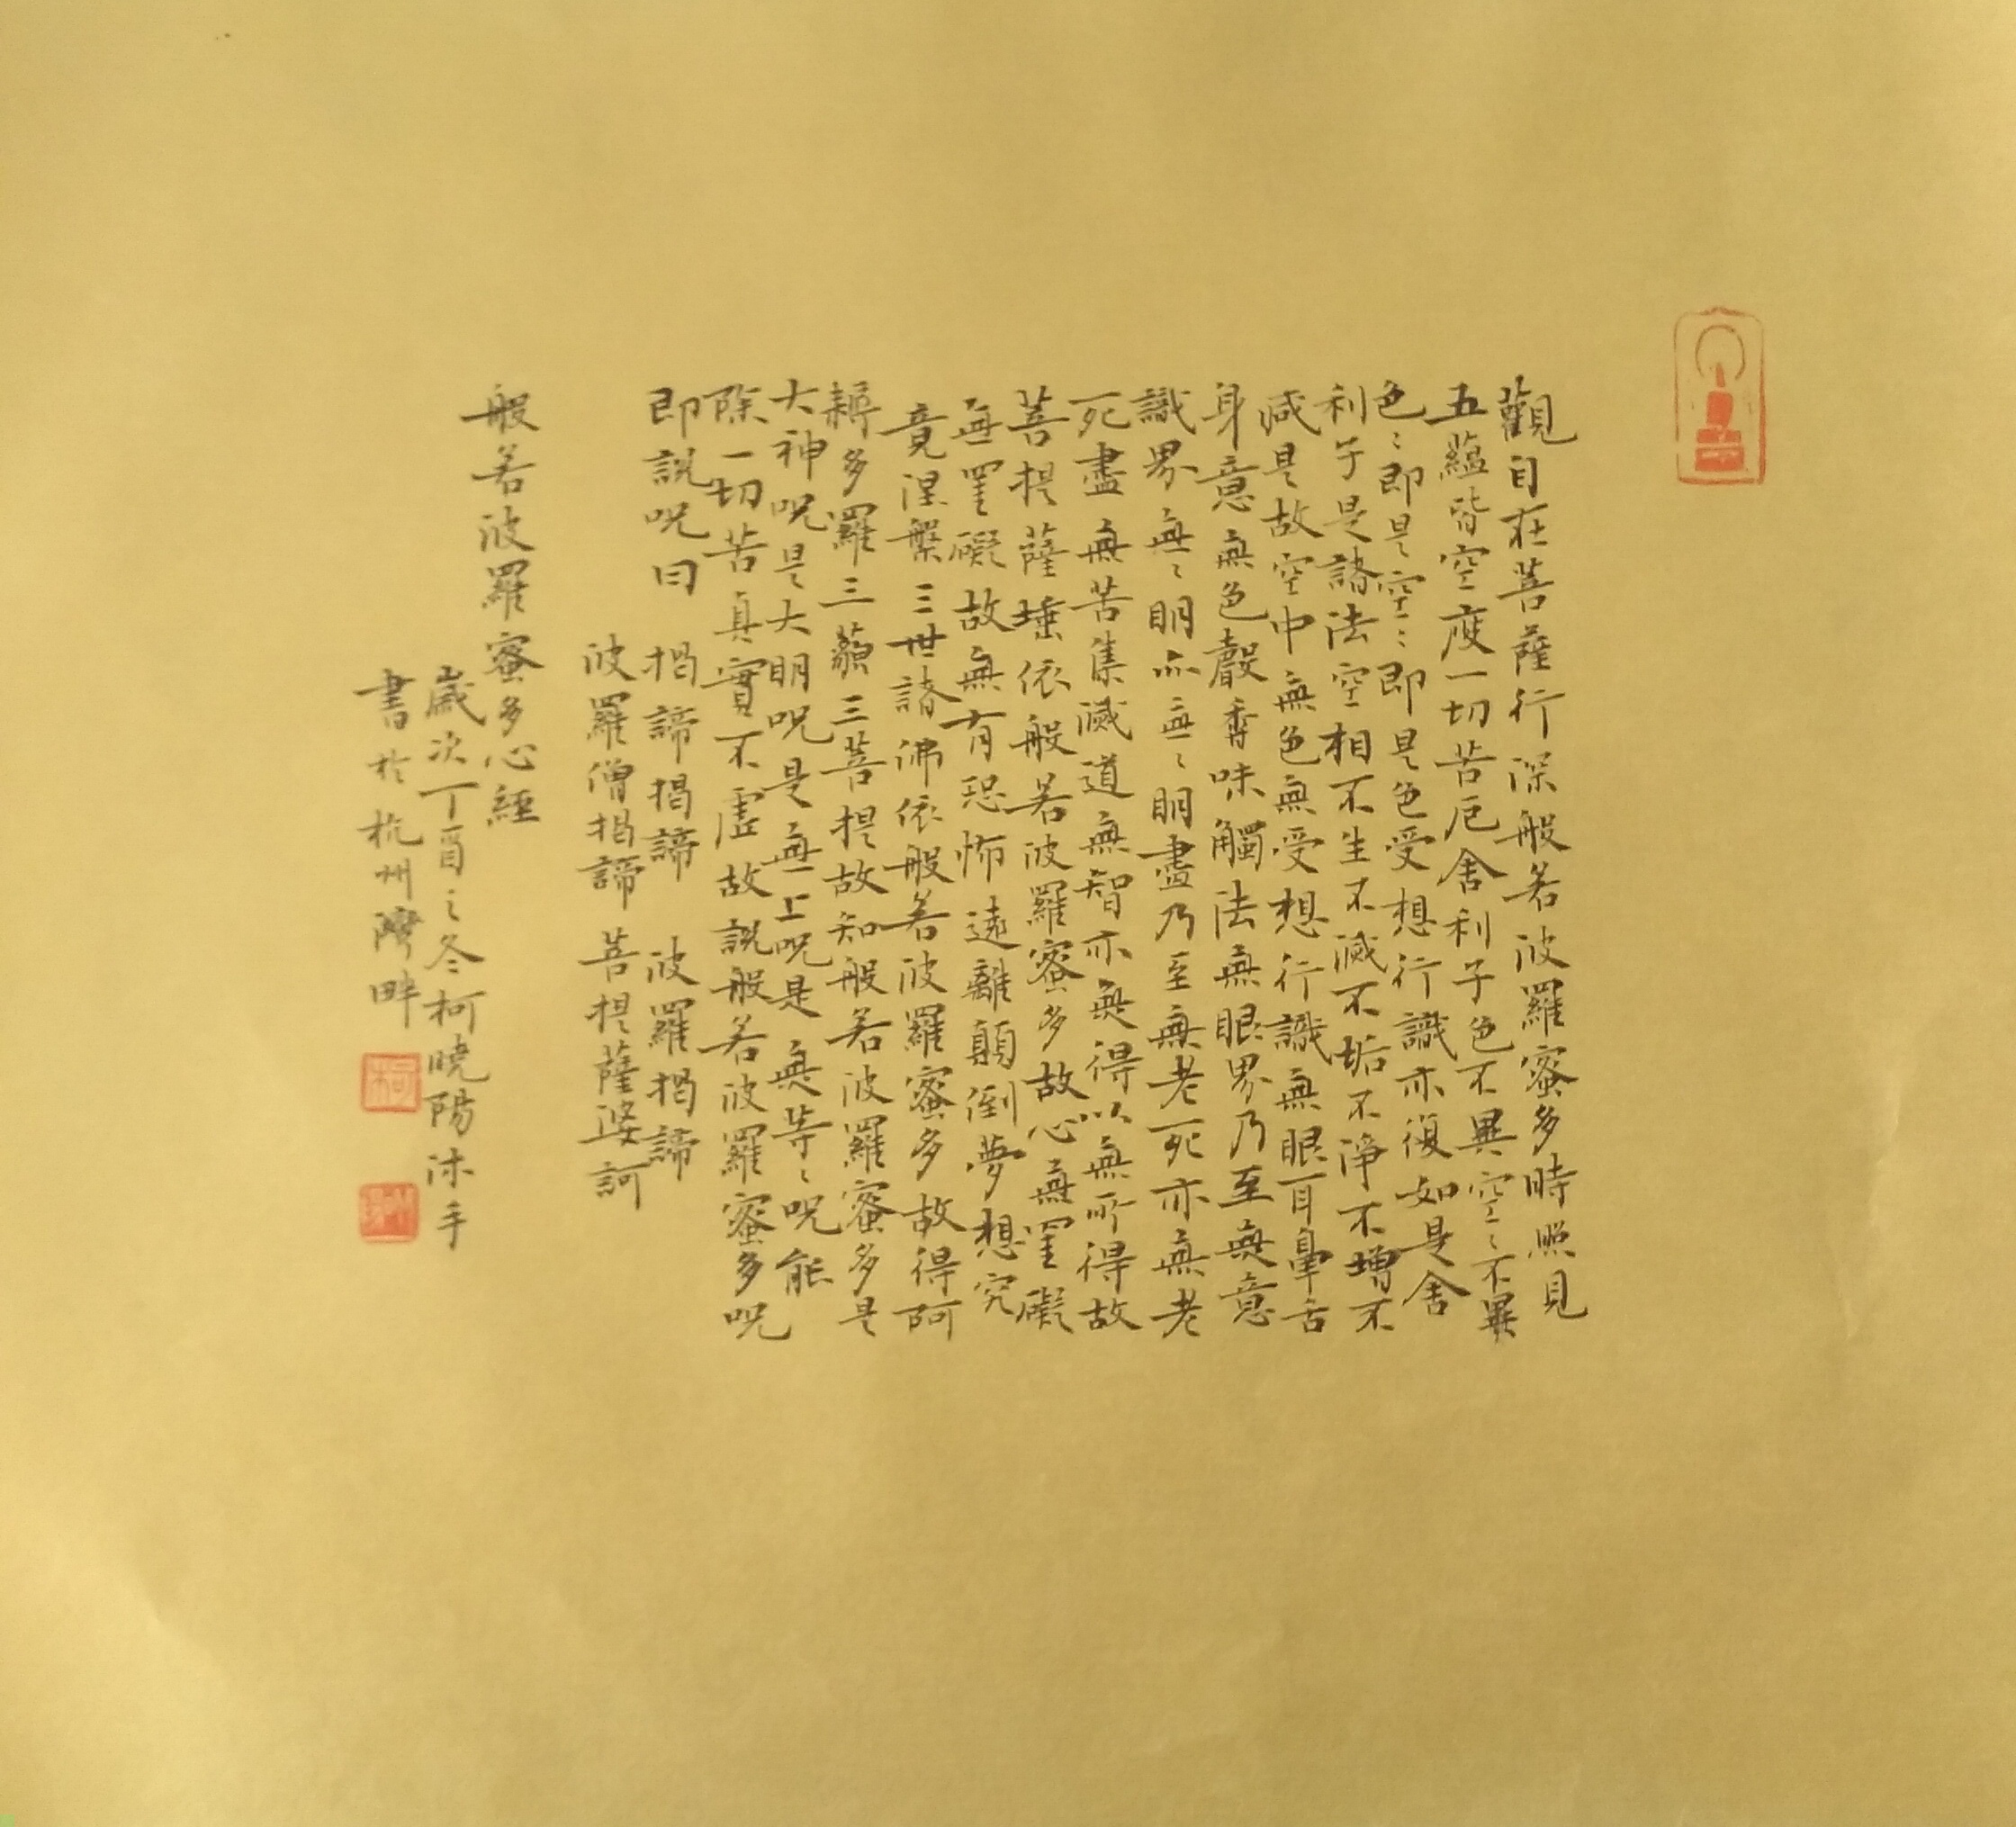 觀自在菩薩行深般若波羅蜜多時照見
五蘊皆空度一切苦厄舍利子色不異空〻不異
色〻即是空〻即是色受想行識亦復如是舍
利子是諸法空相不生不滅不垢不淨不增不
減是故空中無色無受想行識無眼耳鼻舌
身意無色聲香味觸法無眼界乃至無意
識界無〻明亦無〻明盡乃至無老死亦無老
死盡無苦集滅道無智亦無得以無所得故
菩提薩埵依般若波羅蜜多故心無罣礙
無罣礙故無有恐怖遠離顛倒夢想究
竟涅槃三世諸佛依般若波羅蜜多故得阿
耨多羅三藐三菩提故知般若波羅蜜多是
大神呪是大明呪是無上呪是無等〻呪能
除一切苦真實不虛故說般若波羅蜜多呪
即說呪曰 揭諦揭諦 波羅揭諦
波羅僧揭諦 菩提薩婆訶
般若波羅蜜多心經
歲次丁酉之冬柯曉陽沐手
書於杭州灣畔
柯